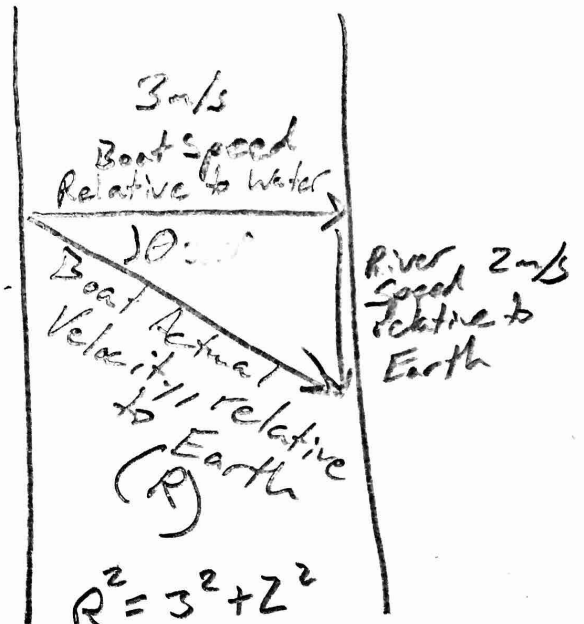 3m/s
Boat Speed
Relative to Water
θ
River 2m/s
Speed
relative to
Earth
Boat Actual
Velocity relative
to Earth
(R)
R² = 3² + 2²